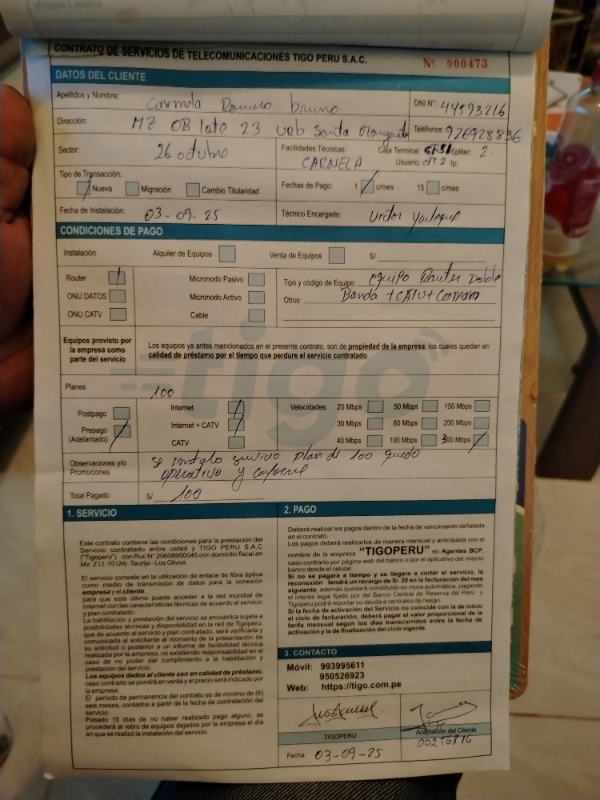 CONTRATO DE SERVICIOS DE TELECOMUNICACIONES TIGO PERU S.A.C.
Nº 000473
DATOS DEL CLIENTE
Apellidos y Nombre: Carmela Romero bruno
DNI Nº: 44593216
Dirección: MZ OB lote 23 urb Santa Margarita
Teléfonos: 926928836
Sector: 26 octubre
Facilidades Técnicas: CARMELA
Caja Terminal: Spliter: 2.
Usuario: Ip:
Tipo de Transacción:
Nueva Migración Cambio Titularidad
Fechas de Pago: 1 c/mes 15 c/mes
Fecha de Instalación: 03-09-25
Técnico Encargado: Victor
CONDICIONES DE PAGO
Instalación Alquiler de Equipos Venta de Equipos S/
Router Micronodo Pasivo
ONU DATOS Micronodo Activo
ONU CATV Cable
Tipo y código de Equipo: equipo Router Doble
Otros: Banda + CATV +
Equipos provisto por la empresa como parte del servicio
Los equipos ya antes mencionados en el presente contrato, son de propiedad de la empresa, los cuales quedan en
calidad de préstamo por el tiempo que perdure el servicio contratado.
tigo
Planes 100
Postpago
Prepago
(Adelantado)
Internet
Internet + CATV
CATV
Velocidades: 20 Mbps 50 Mbps 150 Mbps
30 Mbps 80 Mbps 200 Mbps
40 Mbps 100 Mbps 300 Mbps
Observaciones y/o
Promociones
se instalo servicio plan de 100 quedo
operativo y conforme
Total Pagado S/ 100
1. SERVICIO
Este contrato contiene las condiciones para la prestación del
Servicio contratado entre usted y TIGO PERU S.A.C
("Tigoperu") con Ruc.N° 20608950045 con domicilio fiscal en
Mz. Z Lt. 10 Urb. Taurija - Los Olivos.
El servicio consiste en la utilización de enlace de fibra óptica
como medio de transmisión de datos para la conexión
empresa y el cliente.
para que este último pueda acceder a la red mundial de
Internet con las características técnicas de acuerdo al servicio
y plan contratado.
La habilitación y prestación del servicio se encuentra sujeto a
posibilidades técnicas y disponibilidad en la red de Tigoperu,
que de acuerdo al servicio y plan contratado, será verificada y
comunicada al solicitante al momento de la presentación de
su solicitud o posterior a un informe de factibilidad técnica
realizada por la empresa, no existiendo responsabilidad en el
caso de no poder dar cumplimiento a la habilitación y
prestación del servicio.
Los equipos dados al cliente son en calidad de préstamo,
caso contrario se pondrá en venta y el precio será indicado por
la empresa.
El periodo de permanencia del contrato es de mínimo de (6)
seis meses, contados a partir de la fecha de contratación del
servicio.
Pasado 15 días de no haber realizado pago alguno, se
procederá al retiro de equipos dejados por la empresa el día
en que se realizó la instalación del servicio.
2. PAGO
Deberá realizar los pagos dentro de la fecha de vencimiento señalada
en el contrato.
Los pagos deberá realizarlos de manera mensual y anticipada con el
nombre de la empresa "TIGOPERU" en Agentes BCP,
caso contrario por página web del banco o por el aplicativo del mismo
banco desde el celular.
Si no se pagara a tiempo y se llegara a cortar el servicio, la
reconexión tendrá un recargo de S/ 20 en la facturación del mes
siguiente; además quedará constituido en mora automática, pagando
el interés legal fijado por del Banco Central de Reserva del Perú y
Tigoperu podrá reportar su deuda a centrales de riesgo.
Si la fecha de activación del Servicio no coincide con la de inicio
del ciclo de facturación, deberá pagar el valor proporcional de la
tarifa mensual según los días transcurridos entre la fecha de
activación y la de finalización del ciclo vigente.
3. CONTACTO
Móvil: 993995611
950526923
Web: https://tigo.com.pe
TIGOPERU
Aceptación del Cliente
Fecha: 03-09-25